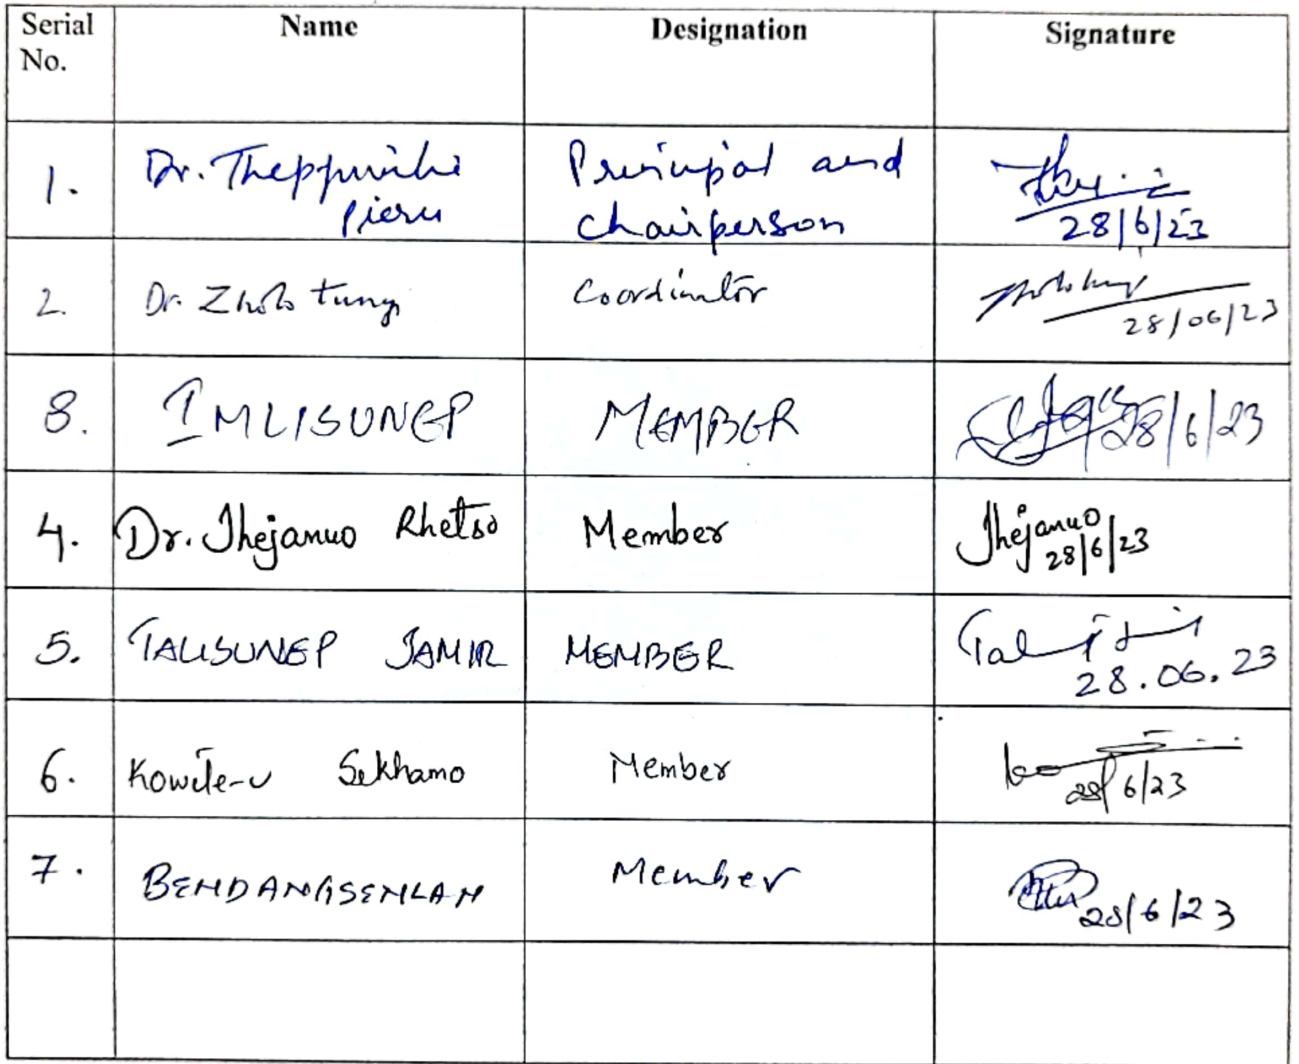 Serial No. Name Designation Signature
1. Dr. Theppuvilie Pieru Principal and Chairperson 28/6/23
2. Dr. Zholo tung Coordinator 28/06/23
8. IMLISUNEP MEMBER 28/6/23
4. Dr. Jhejanuo Rhetso Member Jhejanuo 28/6/23
5. TALISUNEP JAMIR MEMBER 28.06.23
6. Kowete-u Sekhamo Member 28/6/23
7. BENDANGSENLAH Member 28/6/23